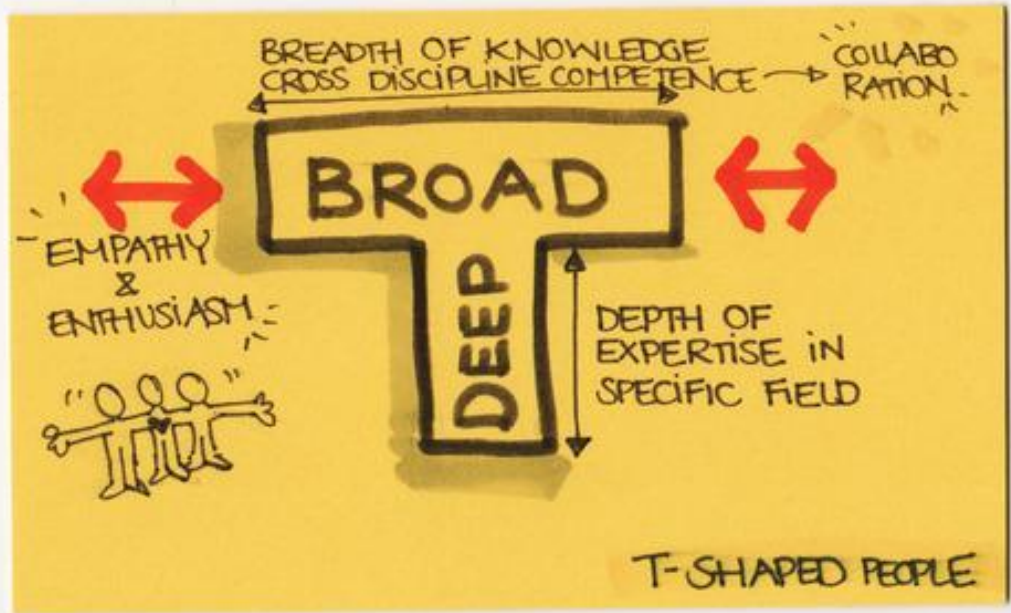 BREADTH OF KNOWLEDGE
CROSS DISCIPLINE COMPETENCE
COLLABO
RATION
BROAD
EMPATHY
&
ENTHUSIASM
DEEP
DEPTH OF
EXPERTISE IN
SPECIFIC FIELD
T-SHAPED PEOPLE